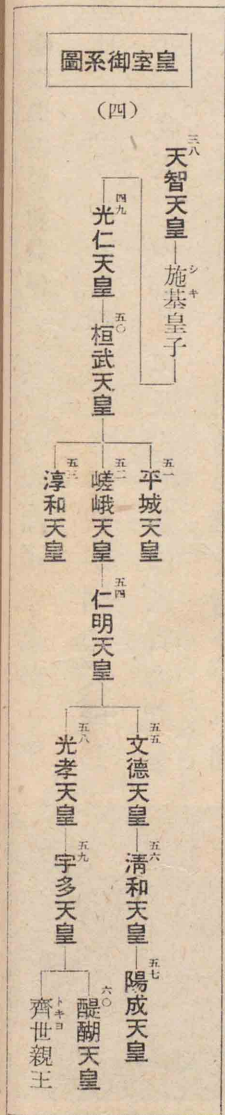 皇室御系圖
(四)
三八
天智天皇
施基皇子
シキ
四九
光仁天皇
五〇
桓武天皇
五一
平城天皇
五二
嵯峨天皇
五三
淳和天皇
五四
仁明天皇
五五
文德天皇
五六
淸和天皇
五七
陽成天皇
五八
光孝天皇
五九
宇多天皇
六〇
醍醐天皇
齊世親王
トキヨ